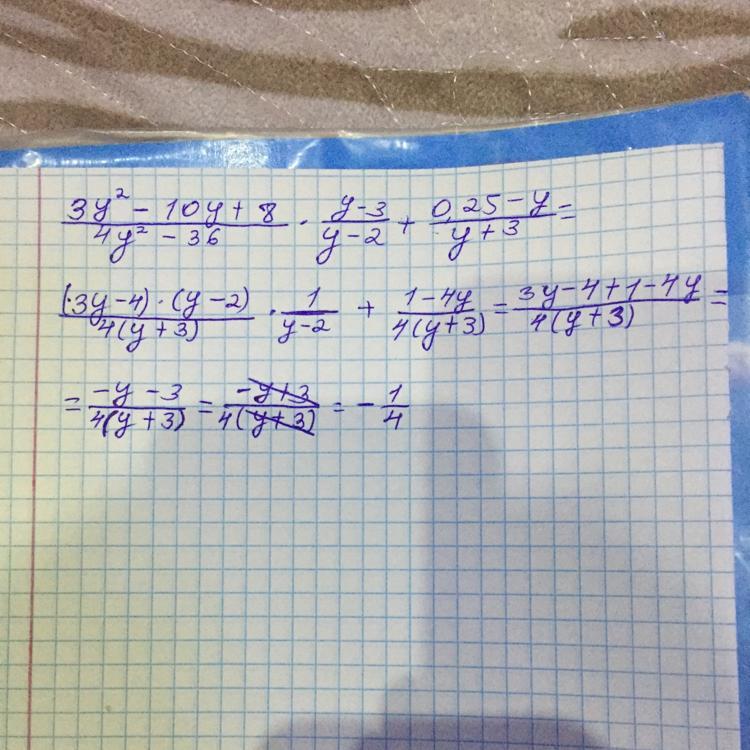 (3y² - 10y + 8)/(4y² - 36) · (y-3)/(y-2) + (0,25 - y)/(y + 3) =
((3y-4)·(y-2))/(4(y+3)) · 1/(y-2) + (1-4y)/(4(y+3)) = (3y-4+1-4y)/(4(y+3)) =
= (-y-3)/(4(y+3)) = (-y+3)/(4(y+3)) = -1/4